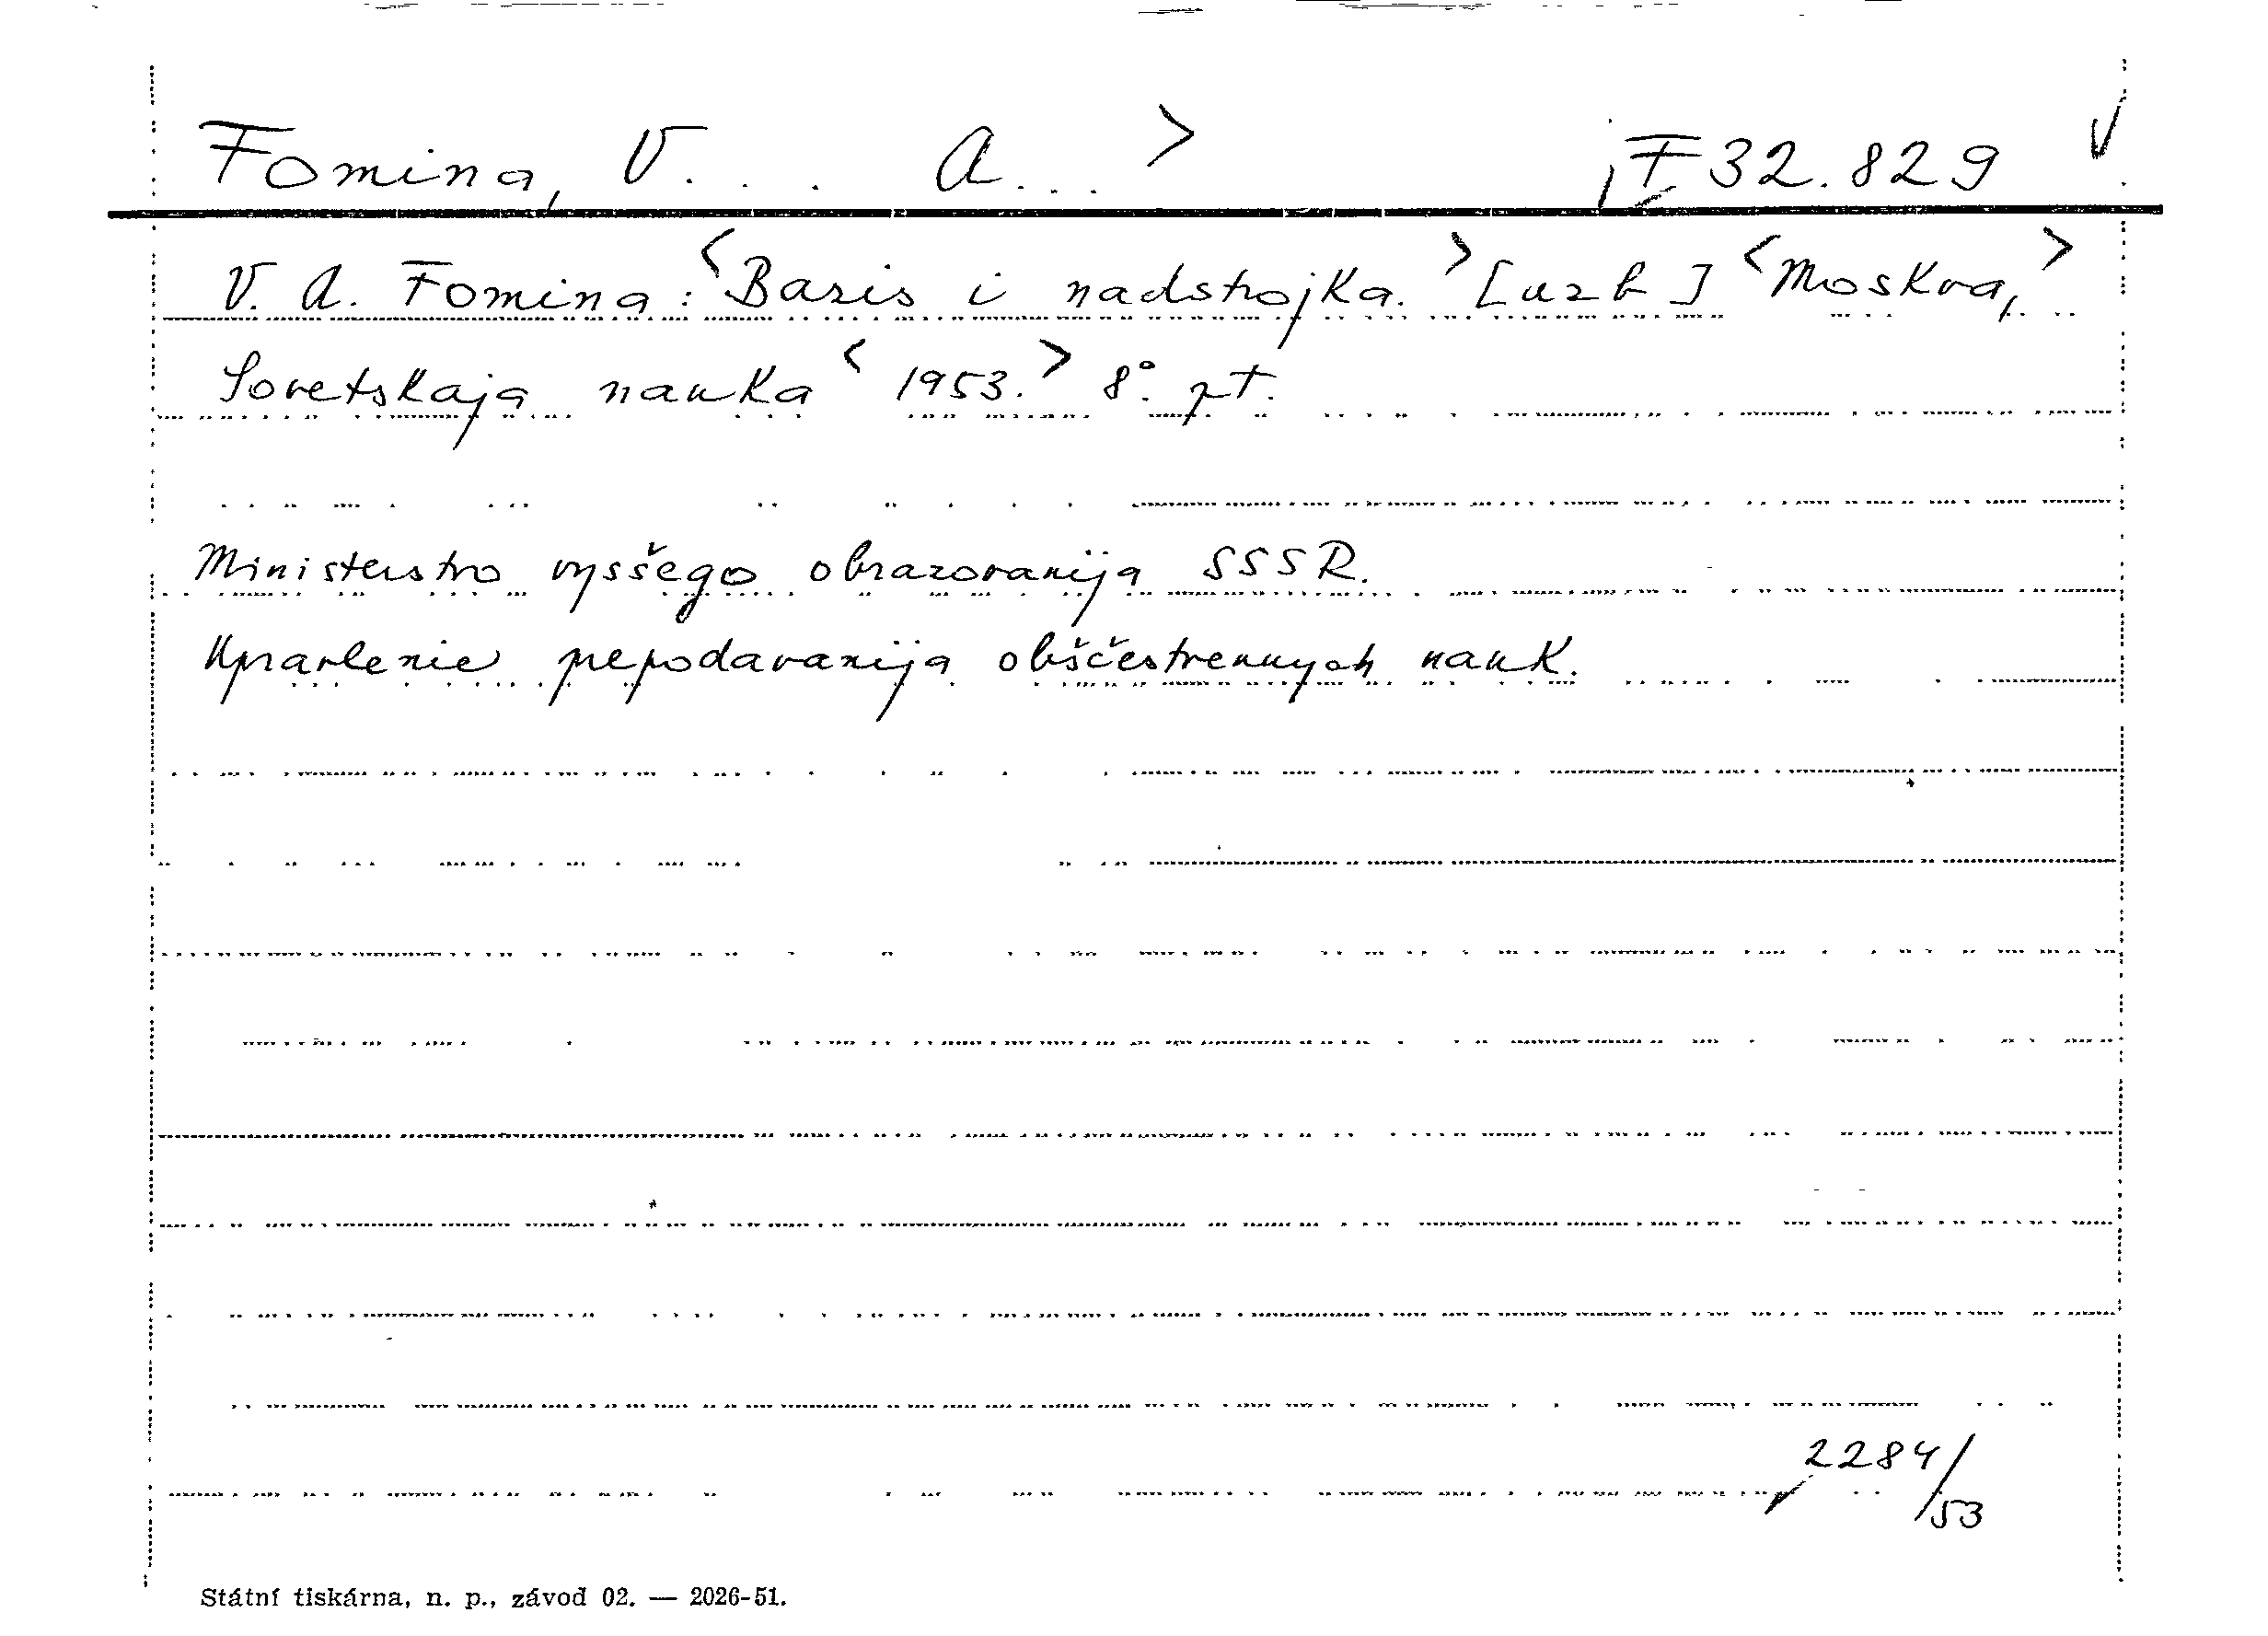 Fomina, V... A...> F 32.829 V
V. A. Fomina: <Bazis i nadstrojka.> [azb] <Moskva,>
Sovetskaja nauka <1953.> 8°. pt.
Ministerstvo vysšego obrazovanija SSSR.
Upravlenie prepodavanija obščestvennych nauk.
2284/53
Státní tiskárna, n. p., závod 02. — 2026-51.